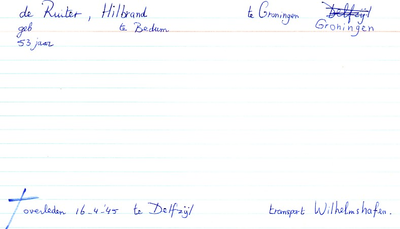 de Ruiter, Hilbrand te Groningen Delfzijl
geb te Bedum Groningen
53 jaar
overleden 16-4-'45 te Delfzijl transport Wilhelmshafen.